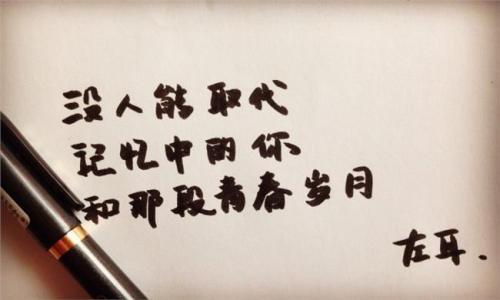 没人能取代
记忆中的你
和那段青春岁月
左耳.